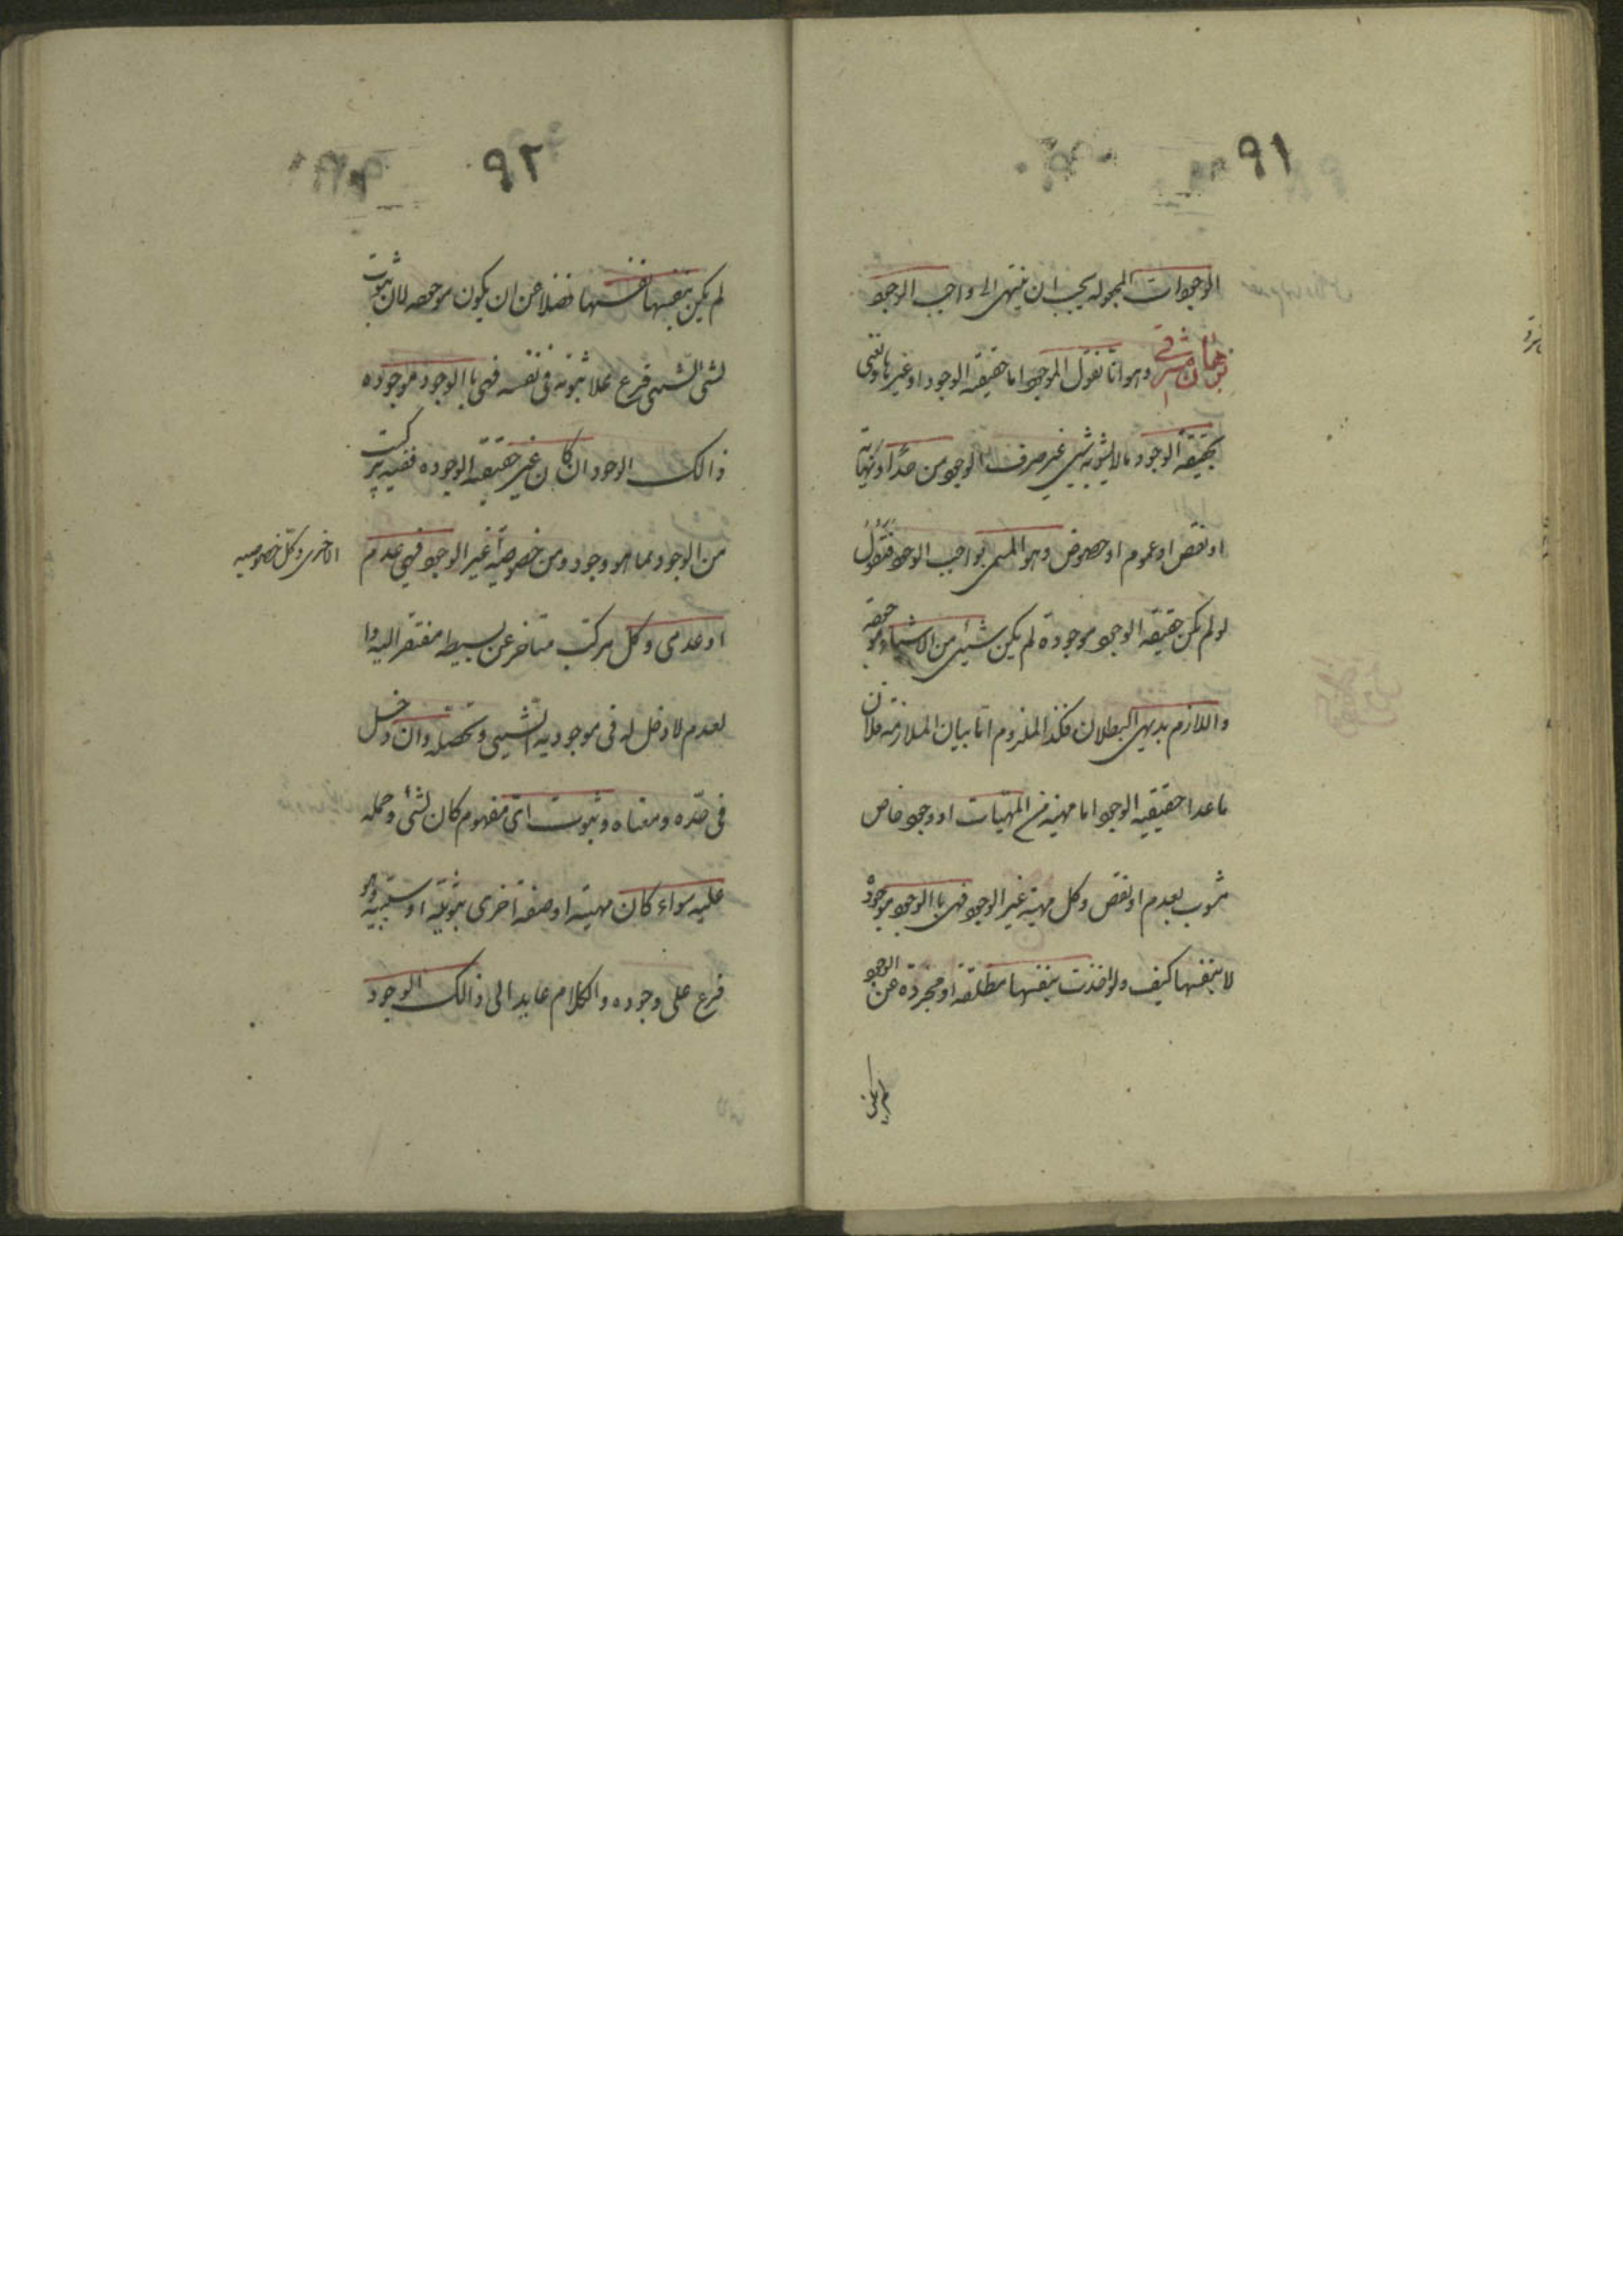 ٩١
الوجودات المجوله يجب ان ينتهى الى واجب الوجود
برهان مشرقي وهو انا نقول الموجود اما حقيقة الوجود او غيرها ونعنى
بحقيقة الوجود ما لا يشوبه شيئ غير صرف الوجود من حد او نهاية
او نقص او عموم او خصوص وهو المسمى بواجب الوجود فنقول
لو لم يكن حقيقة الوجود موجودة لم يكن شيئ من الاشياء موجودة
واللازم بديهى البطلان فكذا الملزوم اما بيان الملازمة فلان
ما عدا حقيقية الوجود اما مهية من المهيات او وجود خاص
مشوب بعدم او نقص وكل مهية غير الوجود فهى باالوجود موجودة
لا بنفسها كيف ولو اخذت بنفسها مطلقة او مجردة عن الوجود
لم يكن
٩٢
لم يكن بنفسها نفسها فضلا عن ان يكون موجودة لان ثبوت
لشئ الشيئ فرع علا ثبوته فى نفسه فهى باالوجود موجوده
ذالك الوجود ان كان غير حقيقة الوجوده ففيه تركيب
من الوجود بما هو وجود ومن خصوصية غير الوجود فهى عدم
الاخرى وكل خصوصيه
او عدمى وكل مركب متاخر عن بسيطه مفتقر اليه وا
لعدم لا دخل له فى موجودية الشيئ وتحصله وان دخل
فى حده ومعناه وثبوت اى مفهوم كان لشئ وحمله
عليه سواء كان مهية او صفة اخرى ثبوتية او سلبية فهو
فرع على وجوده والكلام عايد الى ذالك الوجود